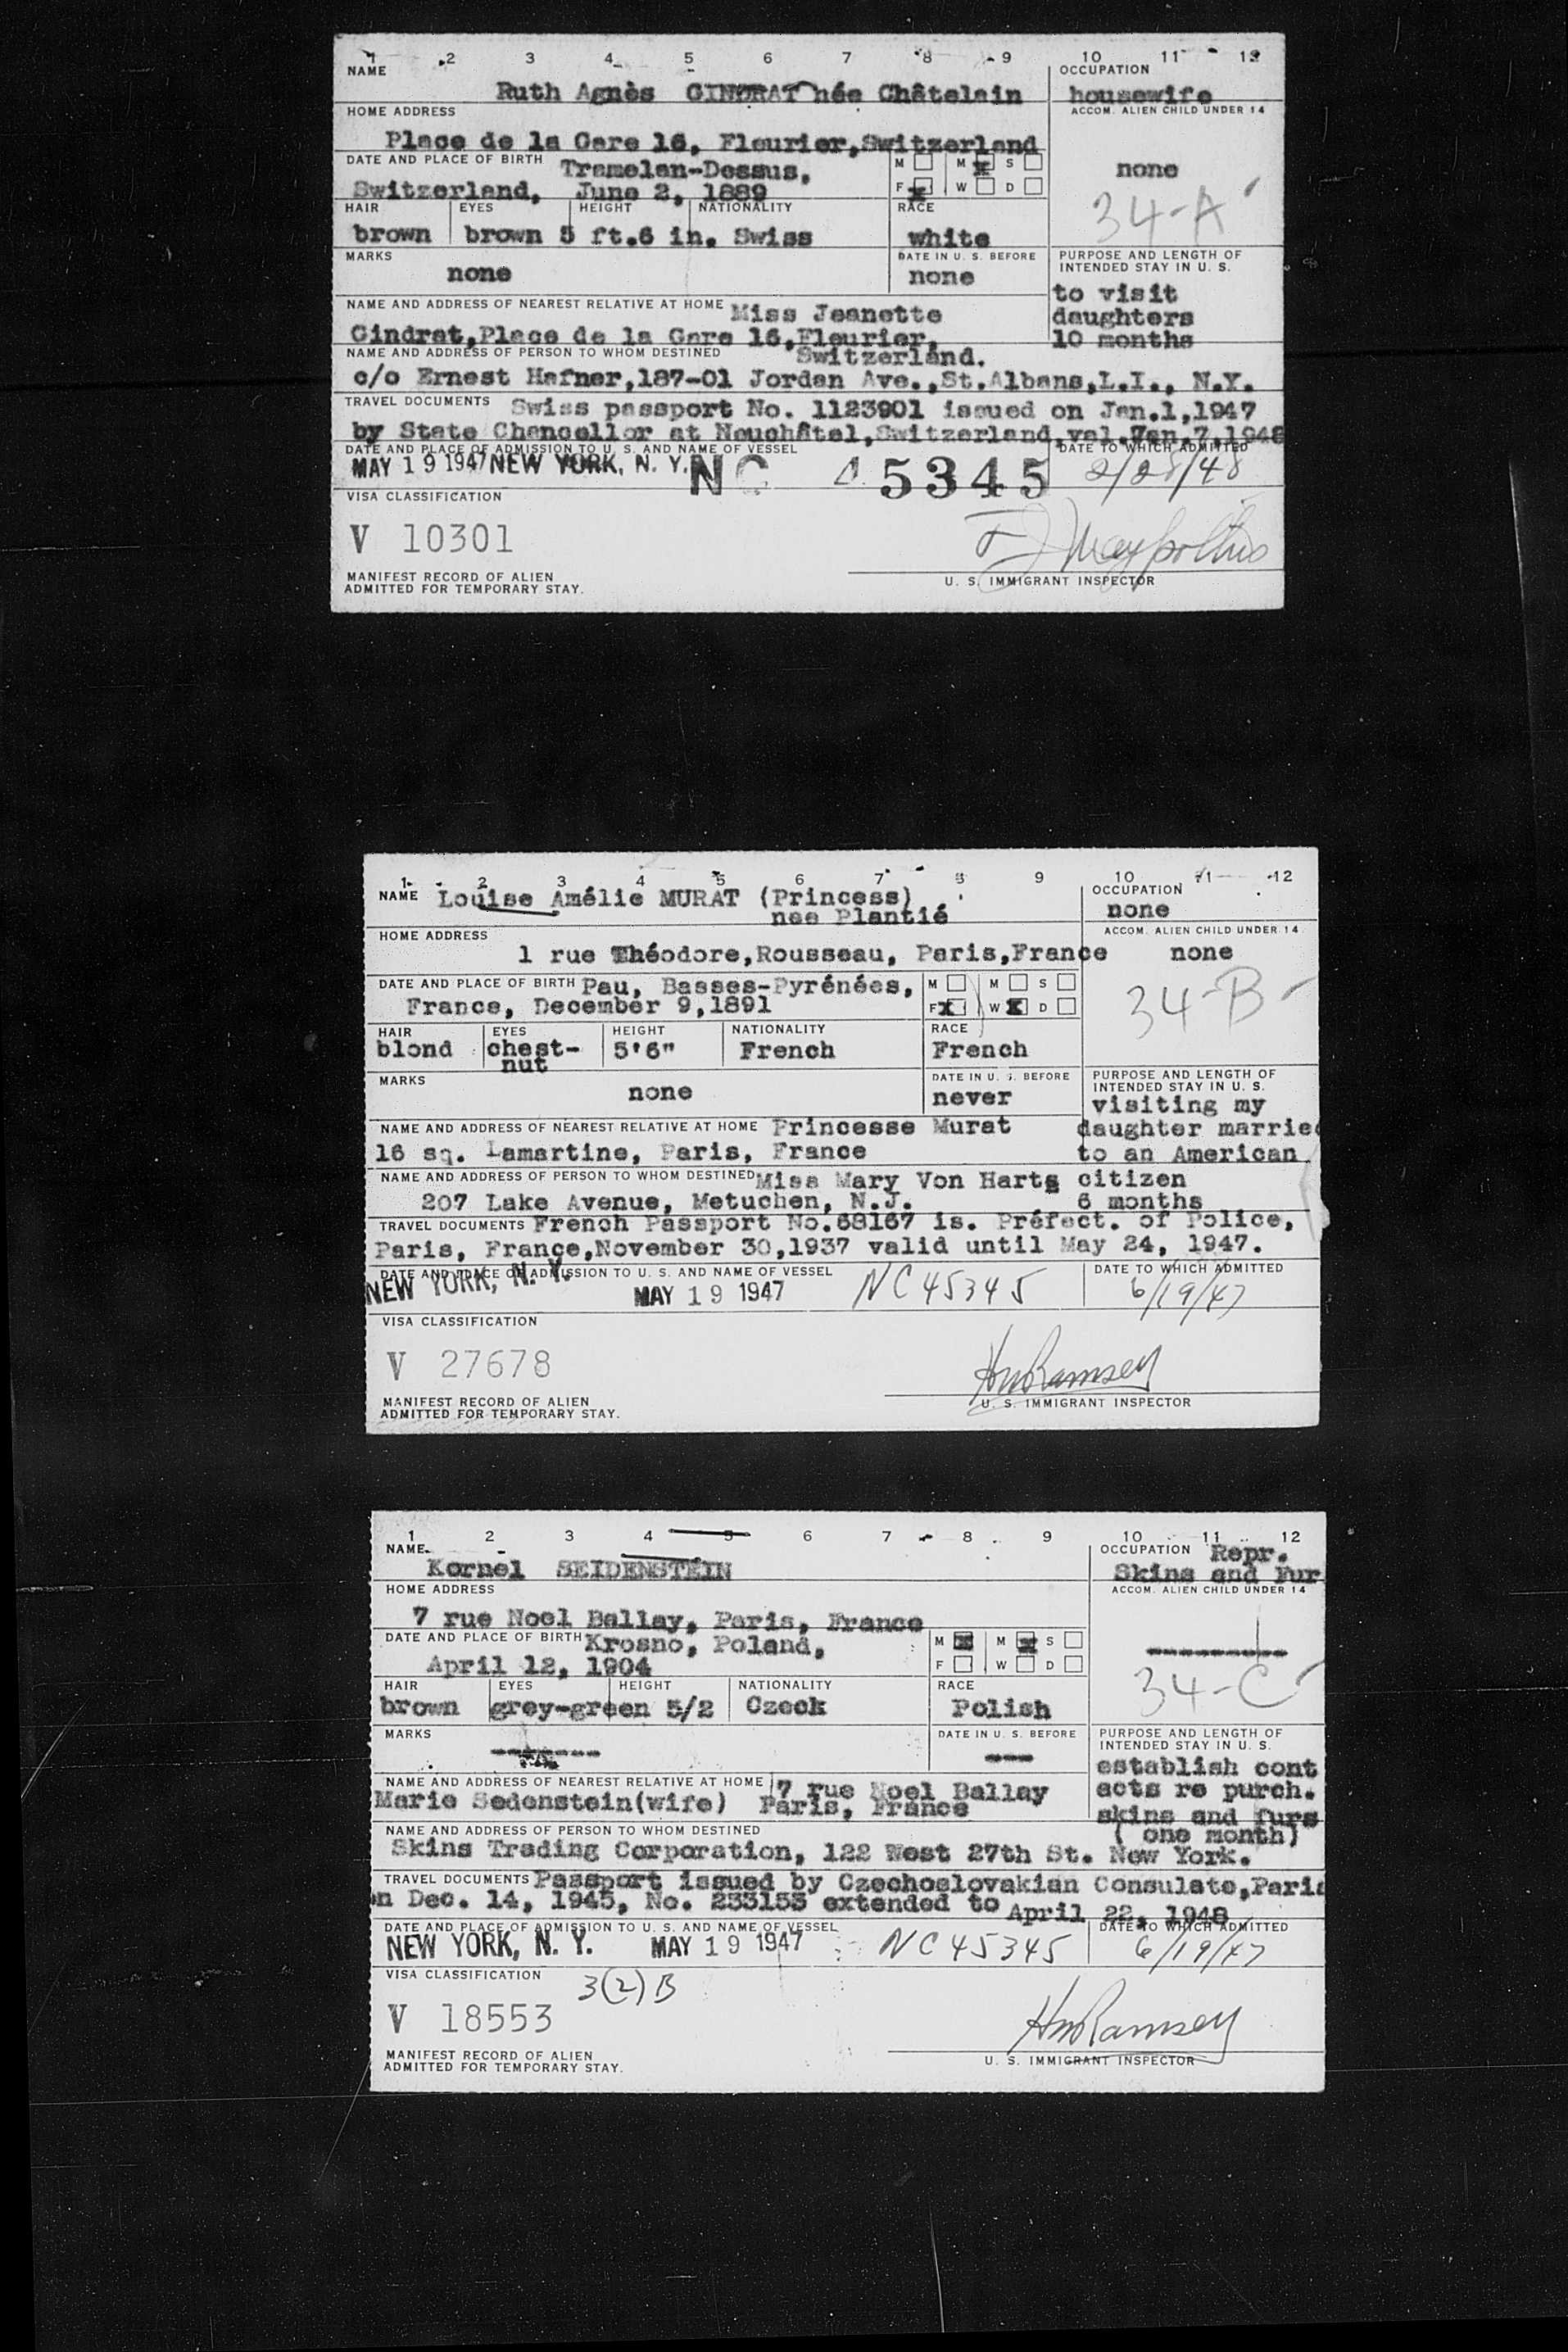 1 2 3 4 5 6 7 8 9 10 11 12
NAME
OCCUPATION
Ruth Agnès GINDRAT née Châtelain
housewife
HOME ADDRESS
ACCOM. ALIEN CHILD UNDER 14
Place de la Gare 16, Fleurier,Switzerland
none
DATE AND PLACE OF BIRTH Tramelan-Dessus,
M M x S
Switzerland, June 2, 1889
F x W D
34-A
HAIR EYES HEIGHT NATIONALITY RACE
brown brown 5 ft.6 in. Swiss white
MARKS
DATE IN U. S. BEFORE
PURPOSE AND LENGTH OF
INTENDED STAY IN U. S.
none
none
to visit
daughters
10 months
NAME AND ADDRESS OF NEAREST RELATIVE AT HOME Miss Jeanette
Gindrat,Place de la Gare 16,Fleurier,
NAME AND ADDRESS OF PERSON TO WHOM DESTINED Switzerland.
c/o Ernest Hafner,187-01 Jordan Ave.,St.Albans,L.I., N.Y.
TRAVEL DOCUMENTS Swiss passport No. 1123901 issued on Jan.1,1947
by State Chancellor at Neuchâtel,Switzerland,val.Jan.7,1948
DATE AND PLACE OF ADMISSION TO U. S. AND NAME OF VESSEL
DATE TO WHICH ADMITTED
MAY 19 1947 NEW YORK, N. Y. NC 45345 2/28/48
VISA CLASSIFICATION
V 10301
MANIFEST RECORD OF ALIEN
ADMITTED FOR TEMPORARY STAY.
U. S. IMMIGRANT INSPECTOR
1 2 3 4 5 6 7 8 9 10 11 12
NAME Louise Amélie MURAT (Princess)
OCCUPATION
nee Plantié
none
HOME ADDRESS
ACCOM. ALIEN CHILD UNDER 14
1 rue Théodore,Rousseau, Paris,France
none
DATE AND PLACE OF BIRTH Pau, Basses-Pyrénées,
M M S
France, December 9,1891
F x W x D
34-B
HAIR EYES HEIGHT NATIONALITY RACE
blond chest-nut 5'6" French French
MARKS
DATE IN U. S. BEFORE
PURPOSE AND LENGTH OF
INTENDED STAY IN U. S.
none
never
visiting my
daughter married
to an American
citizen
6 months
NAME AND ADDRESS OF NEAREST RELATIVE AT HOME Princesse Murat
16 sq. Lamartine, Paris, France
NAME AND ADDRESS OF PERSON TO WHOM DESTINED Miss Mary Von Harts
207 Lake Avenue, Metuchen, N.J.
TRAVEL DOCUMENTS French Passport No.68167 is. Préfect. of Police,
Paris, France,November 30,1937 valid until May 24, 1947.
DATE AND PLACE OF ADMISSION TO U. S. AND NAME OF VESSEL
DATE TO WHICH ADMITTED
NEW YORK, N. Y. MAY 19 1947 NC 45345 6/19/47
VISA CLASSIFICATION
V 27678
HW Ramsey
MANIFEST RECORD OF ALIEN
ADMITTED FOR TEMPORARY STAY.
U. S. IMMIGRANT INSPECTOR
1 2 3 4 5 6 7 8 9 10 11 12
NAME
OCCUPATION Repr.
Kornel SEIDENSTEIN
Skins and Fur
HOME ADDRESS
ACCOM. ALIEN CHILD UNDER 14
7 rue Noel Ballay, Paris, France
DATE AND PLACE OF BIRTH Krosno, Poland,
M x M x S
April 12, 1904
F W D
34-C
HAIR EYES HEIGHT NATIONALITY RACE
brown grey-green 5/2 Czeck Polish
MARKS
DATE IN U. S. BEFORE
PURPOSE AND LENGTH OF
INTENDED STAY IN U. S.
establish cont
acts re purch.
skins and furs
( one month)
NAME AND ADDRESS OF NEAREST RELATIVE AT HOME 7 rue Noel Ballay
Marie Sedenstein(wife) Paris, France
NAME AND ADDRESS OF PERSON TO WHOM DESTINED
Skins Trading Corporation, 122 West 27th St. New York.
TRAVEL DOCUMENTS Passport issued by Czechoslovakian Consulate,Paris
on Dec. 14, 1945, No. 233153 extended to April 22, 1948
DATE AND PLACE OF ADMISSION TO U. S. AND NAME OF VESSEL
DATE TO WHICH ADMITTED
NEW YORK, N. Y. MAY 19 1947 NC 45345 6/19/47
VISA CLASSIFICATION
3(2)B
V 18553
HW Ramsey
MANIFEST RECORD OF ALIEN
ADMITTED FOR TEMPORARY STAY.
U. S. IMMIGRANT INSPECTOR